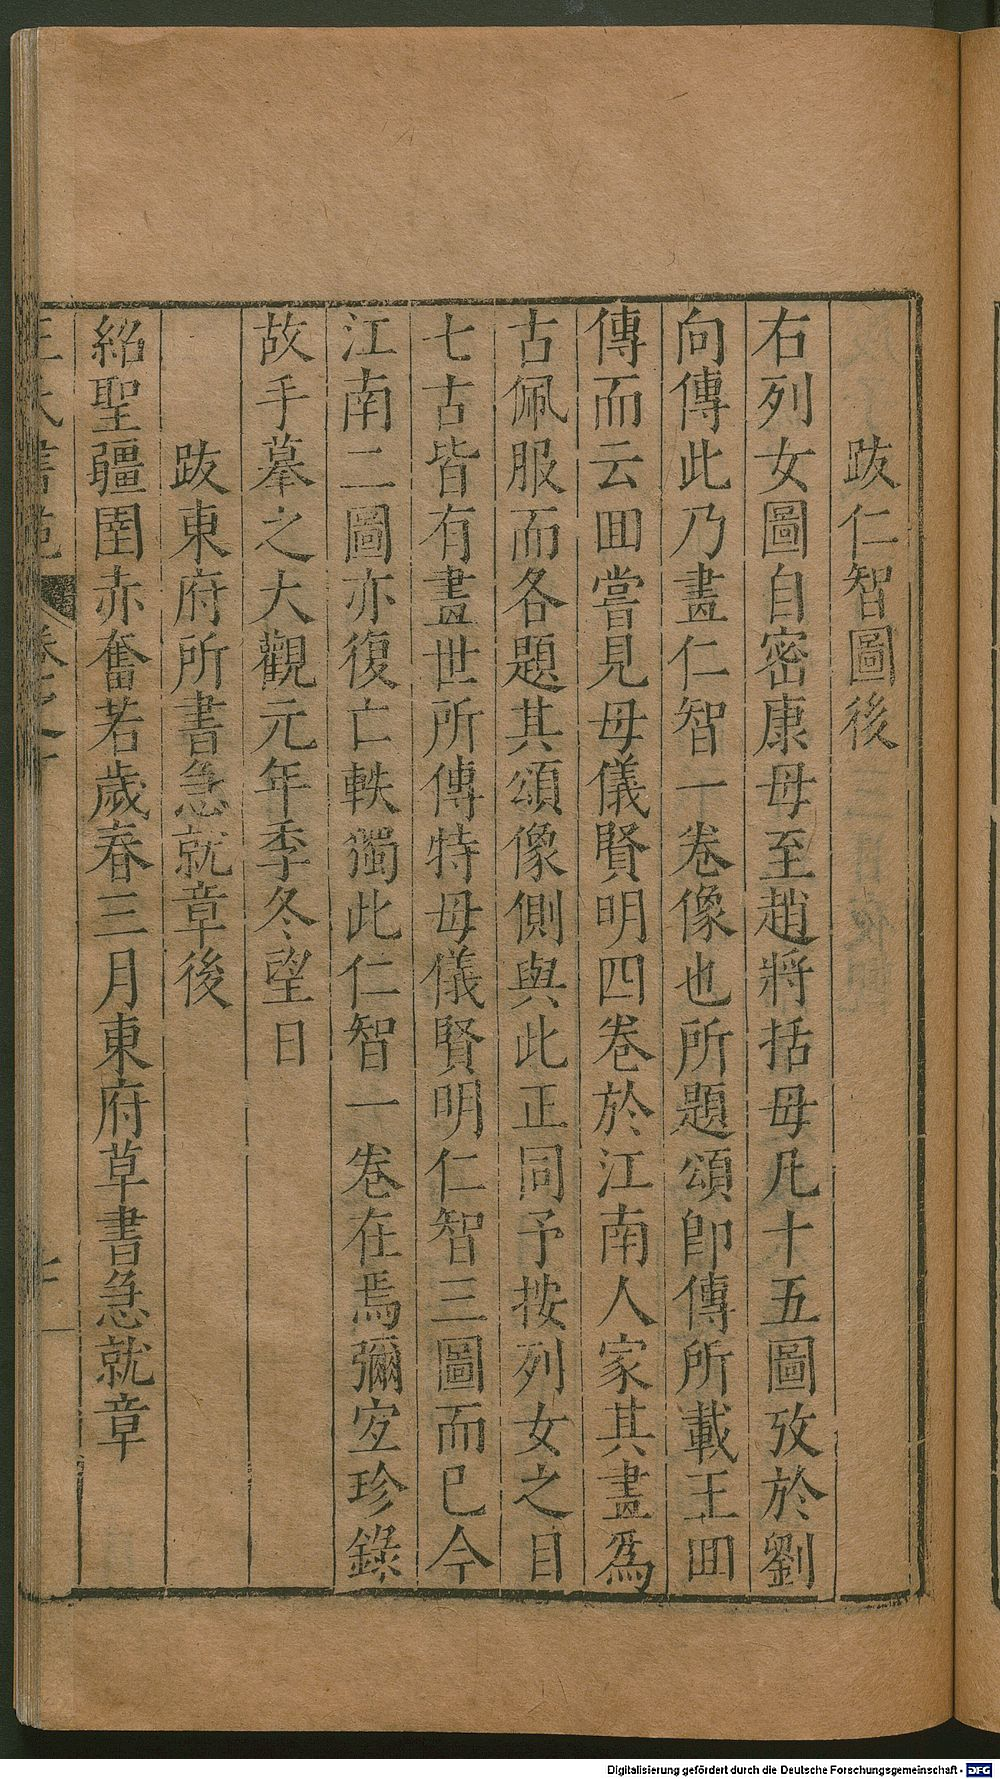 跋仁智圖後
右列女圖自密康母至趙將括母凡十五圖攷於劉
向傳此乃畫仁智一卷像也所題頌卽傳所載王囬
傳而云囬嘗見母儀賢明四卷於江南人家其畫爲
古佩服而各題其頌像側與此正同予按列女之目
七古皆有畫世所傳特母儀賢明仁智三圖而已今
江南二圖亦復亡軼獨此仁智一卷在焉彌宐珍錄
故手摹之大觀元年季冬望日
跋東府所書急就章後
紹聖疆圉赤奮若歲春三月東府草書急就章
Digitalisierung gefördert durch die Deutsche Forschungsgemeinschaft - DFG